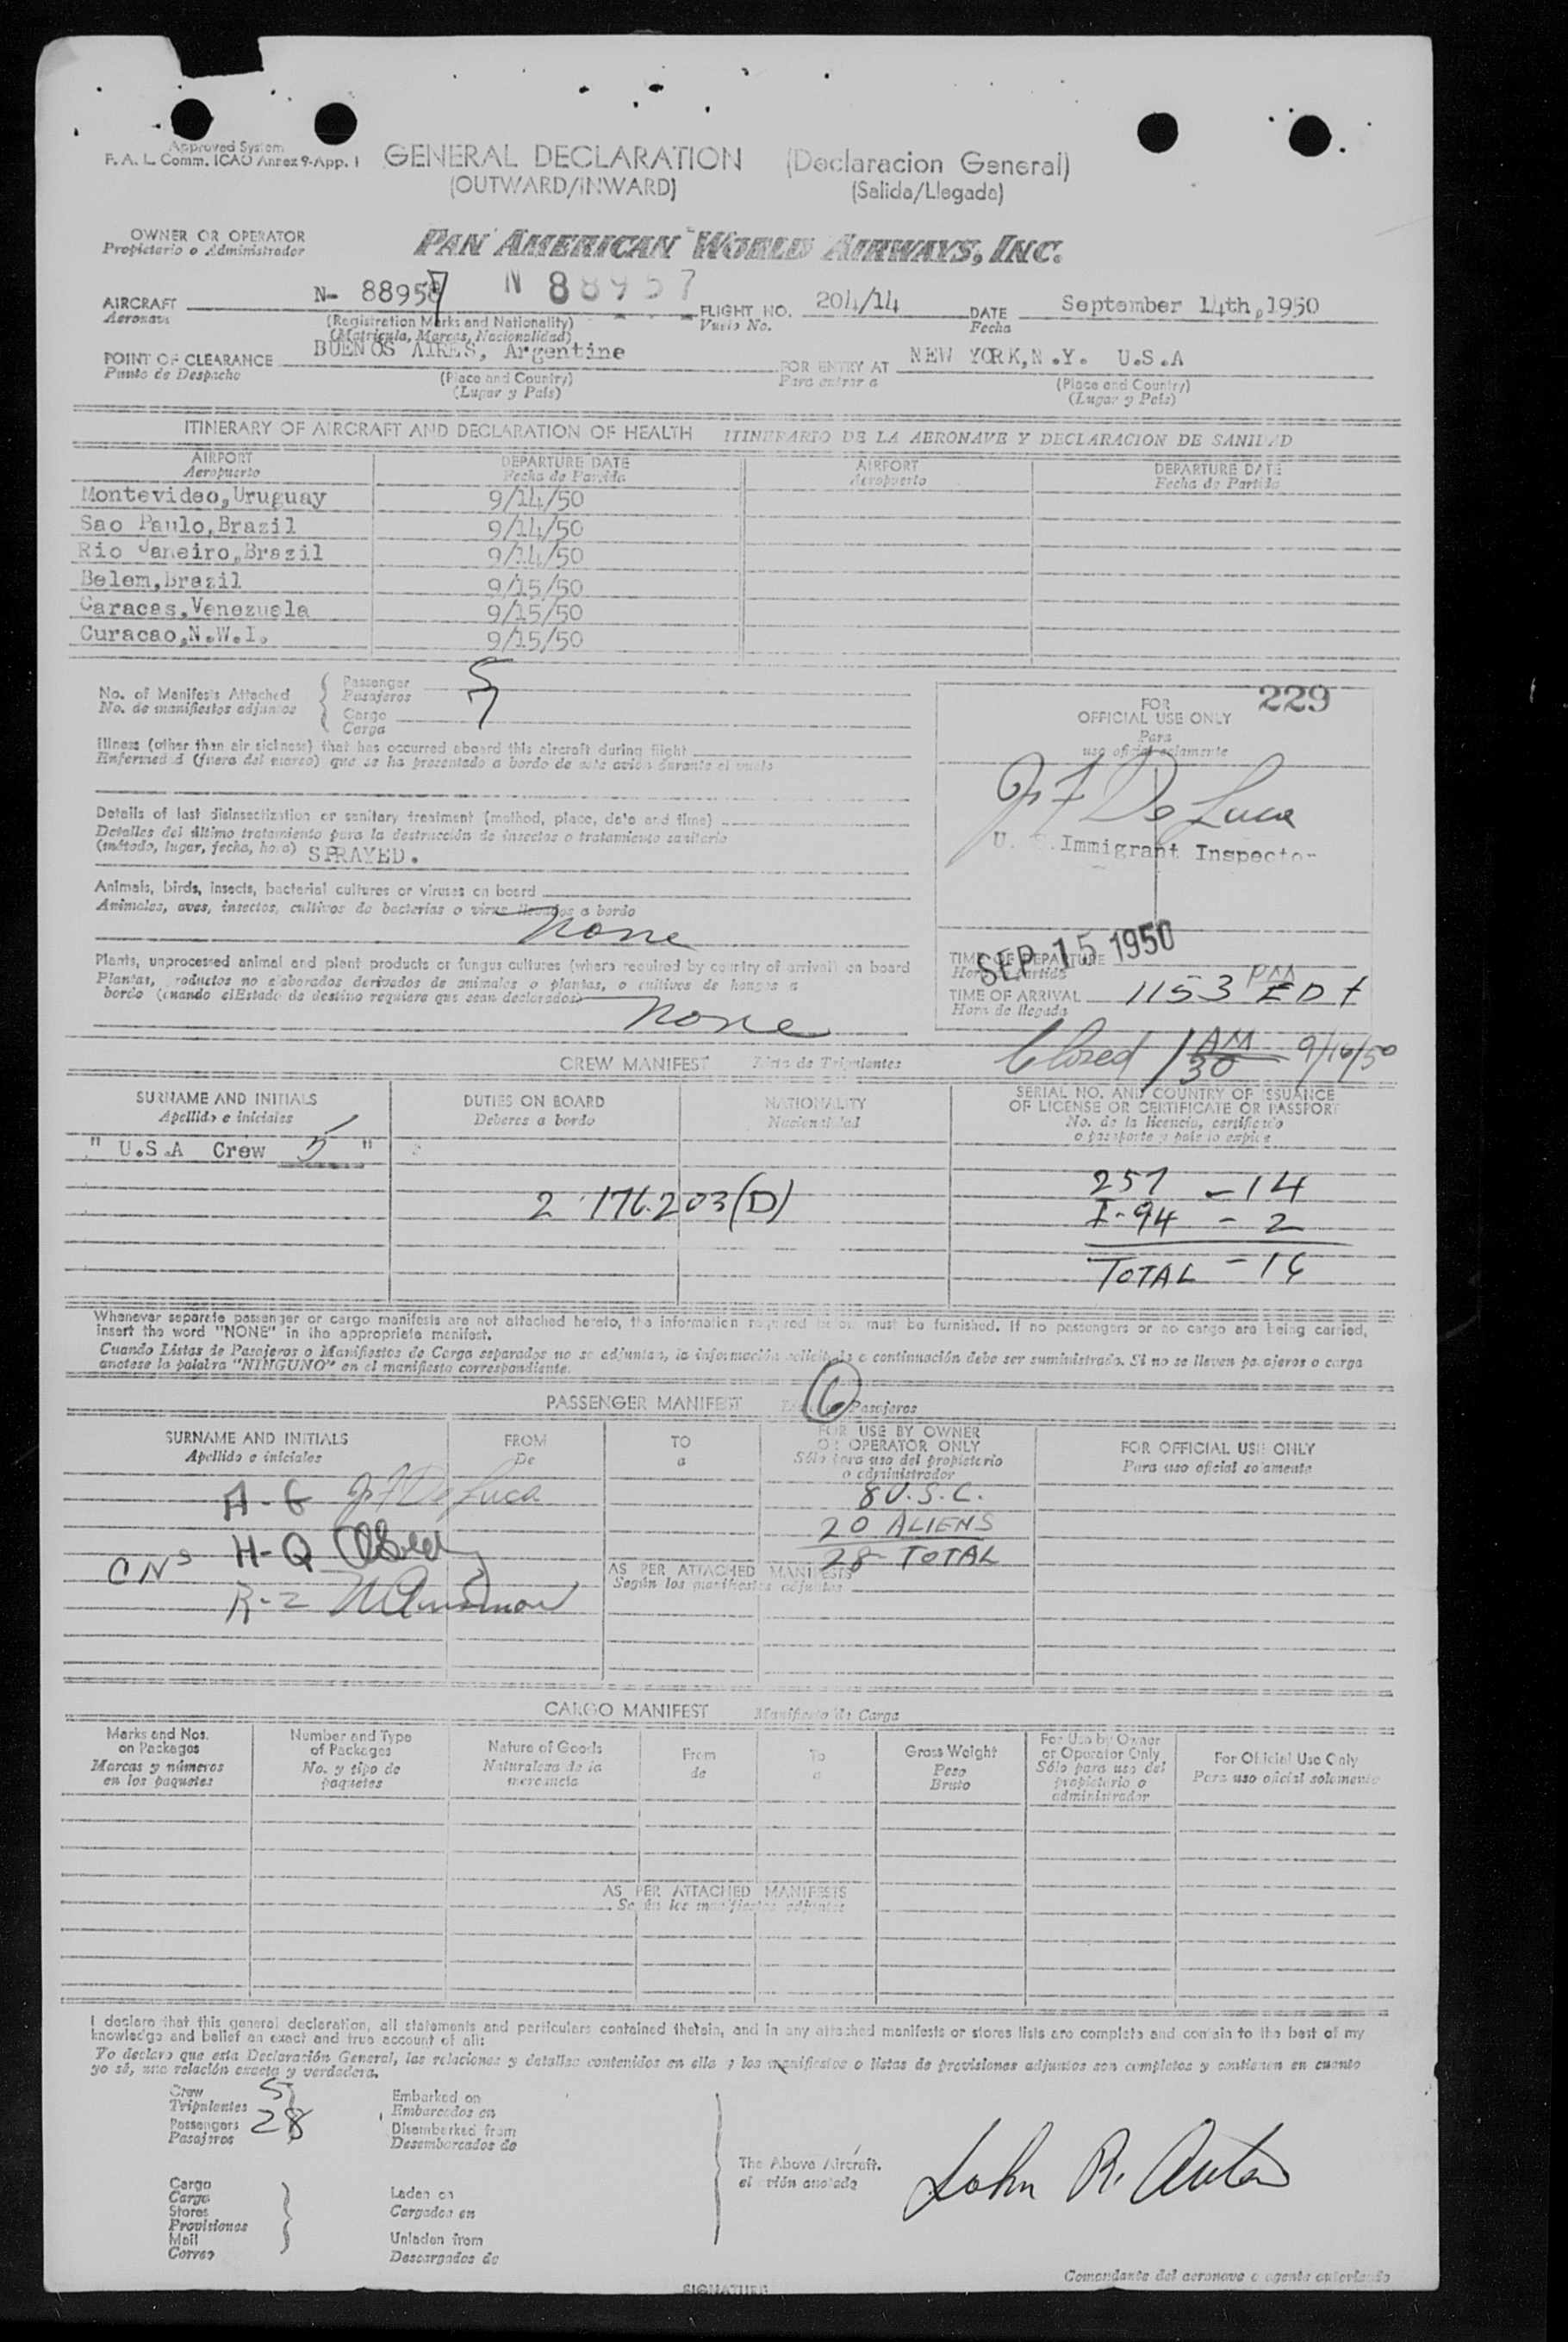 Approved System
F. A. L. Comm. ICAO Annex 9-App. 1
GENERAL DECLARATION (Declaracion General)
(OUTWARD/INWARD) (Salida/Llegada)
OWNER OR OPERATOR
Propietario o Administrador
PAN AMERICAN WORLD AIRWAYS, INC.
AIRCRAFT N- 88957 N 88957 FLIGHT NO. 204/14 DATE September 14th, 1950
Aeronave (Registration Marks and Nationality) Vuelo No. Fecha
(Matricula, Marcas, Nacionalidad)
POINT OF CLEARANCE BUENOS AIRES, Argentine FOR ENTRY AT NEW YORK, N.Y. U.S.A
Punto de Despacho (Place and Country) Para entrar a (Place and Country)
(Lugar y País) (Lugar y País)
ITINERARY OF AIRCRAFT AND DECLARATION OF HEALTH ITINERARIO DE LA AERONAVE Y DECLARACION DE SANIDAD
AIRPORT DEPARTURE DATE AIRPORT DEPARTURE DATE
Aeropuerto Fecha de Partida Aeropuerto Fecha de Partida
Montevideo,Uruguay 9/14/50
Sao Paulo,Brazil 9/14/50
Rio Janeiro,Brazil 9/14/50
Belem,Brazil 9/15/50
Caracas,Venezuela 9/15/50
Curacao,N.W.I. 9/15/50
No. of Manifests Attached
No. de manifiestos adjuntos
Passenger
Pasajeros
Cargo
Carga
229
FOR
OFFICIAL USE ONLY
Para
uso oficial solamente
Illness (other than air sickness) that has occurred aboard this aircraft during flight
Enfermedad (fuera del mareo) que se ha presentado a bordo de este avión durante el vuelo
J F De Luca
U. S. Immigrant Inspector
Details of last disinsectization or sanitary treatment (method, place, date and time)
Detalles del último tratamiento para la destrucción de insectos o tratamiento sanitario
(método, lugar, fecha, hora) SPRAYED.
Animals, birds, insects, bacterial cultures or viruses on board
Animales, aves, insectos, cultivos de bacterias o virus llevados a bordo
None
Plants, unprocessed animal and plant products or fungus cultures (where required by country of arrival) on board
Plantas, productos no elaborados derivados de animales o plantas, o cultivos de hongos a
bordo (cuando el Estado de destino requiere que sean declarados)
None
TIME OF DEPARTURE SEP 15 1950
Hora de partida
TIME OF ARRIVAL 1153 PM EDT
Hora de llegada
Closed 1 30 AM 9/16/50
CREW MANIFEST Lista de Tripulantes
SURNAME AND INITIALS DUTIES ON BOARD NATIONALITY SERIAL NO. AND COUNTRY OF ISSUANCE
Apellido e iniciales Deberes a bordo Nacionalidad OF LICENSE OR CERTIFICATE OR PASSPORT
No. de la licencia, certificado
o pasaporte y país lo expide
" U.S.A Crew 5 "
2 176.203(D)
257 - 14
I-94 - 2
TOTAL - 16
Whenever separate passenger or cargo manifests are not attached hereto, the information required below must be furnished. If no passengers or no cargo are being carried,
insert the word "NONE" in the appropriate manifest.
Cuando Listas de Pasajeros o Manifiestos de Carga separados no se adjuntan, la información solicitada a continuación debe ser suministrada. Si no se lleven pasajeros o carga
anotese la palabra "NINGUNO" en el manifiesto correspondiente.
PASSENGER MANIFEST 6 Pasajeros
SURNAME AND INITIALS FROM TO FOR USE BY OWNER FOR OFFICIAL USE ONLY
Apellido e iniciales De a OR OPERATOR ONLY Para uso oficial solamente
Sólo para uso del propietario
o administrador
A-G J F De Luca 8 U.S.C.
20 ALIENS
H-Q 28 TOTAL
AS PER ATTACHED MANIFESTS
Según los manifiestos adjuntos
R-Z
CARGO MANIFEST Manifiesto de Carga
Marks and Nos. on Packages
Marcas y números en los paquetes
Number and Type of Packages
No. y tipo de paquetes
Nature of Goods
Naturaleza de la mercancia
From
de
To
a
Gross Weight
Peso Bruto
For Use by Owner or Operator Only
Sólo para uso del propietario o administrador
For Official Use Only
Para uso oficial solamente
AS PER ATTACHED MANIFESTS
Según los manifiestos adjuntos
I declare that this general declaration, all statements and particulars contained therein, and in any attached manifests or stores lists are complete and contain to the best of my
knowledge and belief an exact and true account of all:
Yo declaro que esta Declaración General, las relaciones y detalles contenidos en ella y los manifiestos o listas de provisiones adjuntos son completos y contienen en cuanto
yo sé, una relación exacta y verdadera.
Crew 5 Embarked on
Tripulantes Embarcados en
Passengers 28 Disembarked from
Pasajeros Desembarcados de
The Above Aircraft.
el avión anotado
Cargo
Carga Laden on
Stores Cargados en
Provisiones
Mail Unladen from
Correo Descargados de
Comandante del aeronave o agente autorizado
SIGNATURE